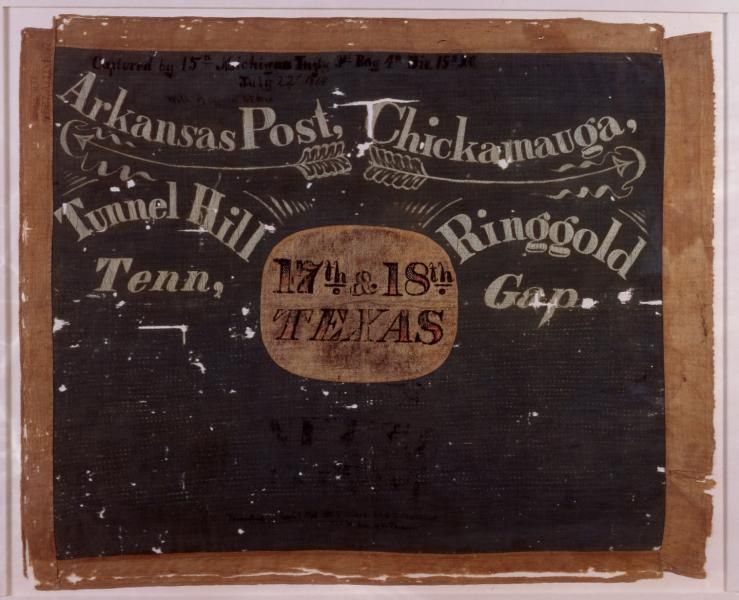 Captured by 15th Michigan Infy 3d Brig 4th Div. 15th A.C.
July 22d 1864
Arkansas Post, Chickamauga,
Tunnel Hill Ringgold
Tenn, Gap.
17th & 18th
TEXAS